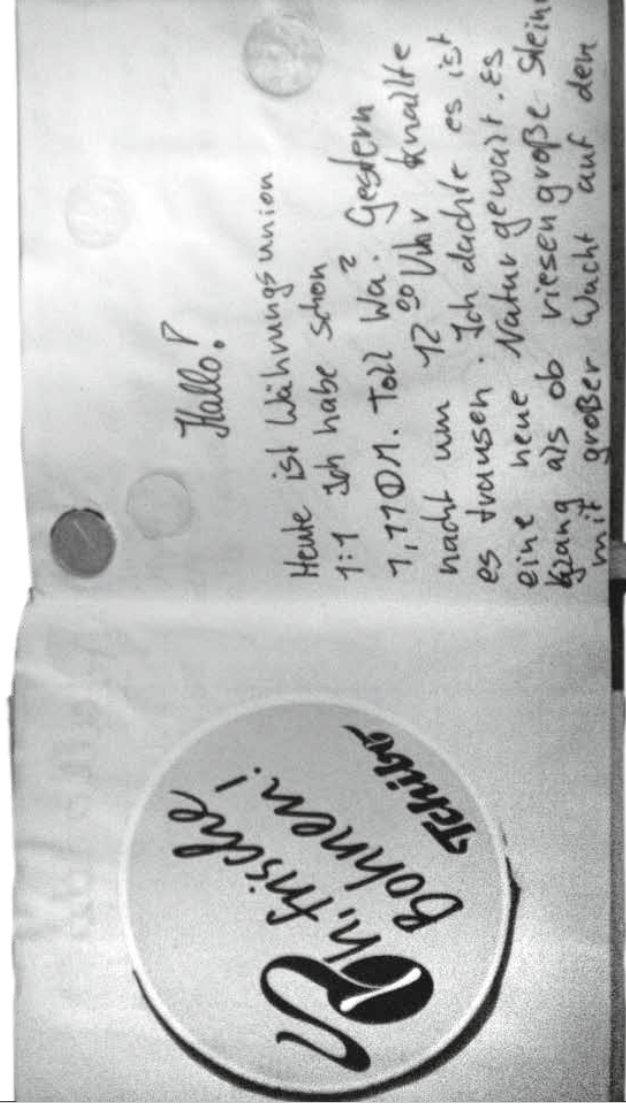 Oh, frische
Bohnen!
Tchibo
Hallo!
Heute ist Währungsunion
1:1 Ich habe schon
1,11DM. Toll Wa? Gestern
nacht um 12⁰⁰ Uhr knallte
es drausen. Ich dachte es ist
eine neue Naturgewalt. Es
klang als ob riesengroße Stein
mit großer Wucht auf den